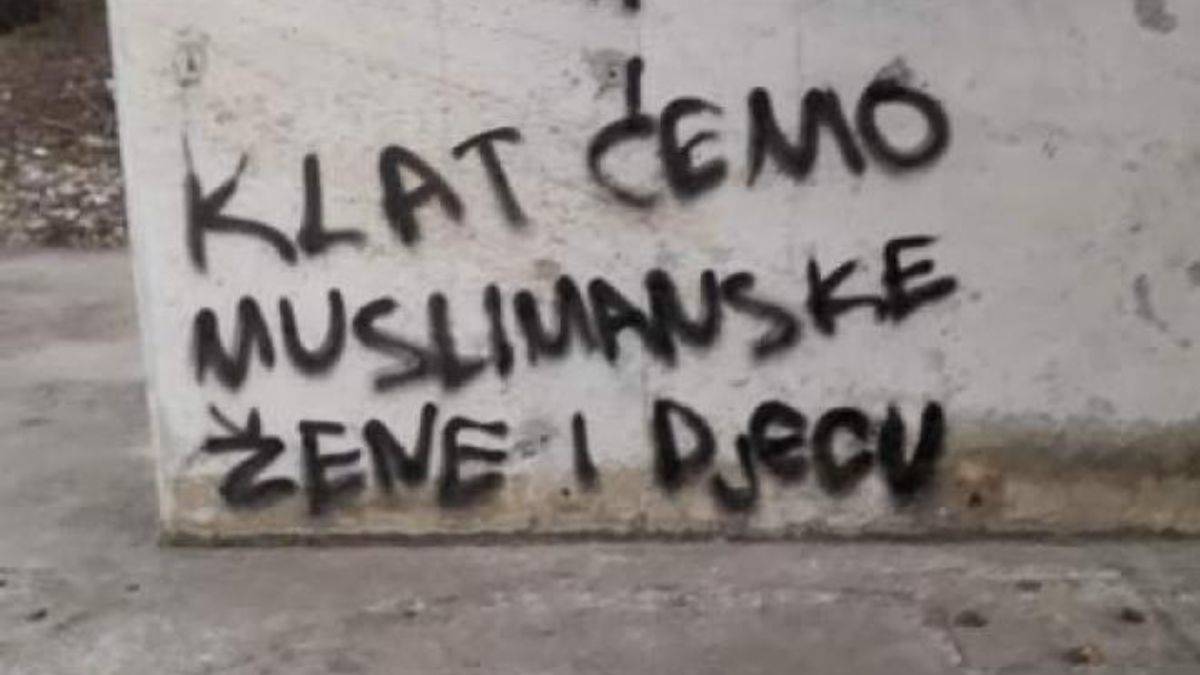 KLAT ĆEMO
MUSLIMANSKE
ŽENE I DjECU